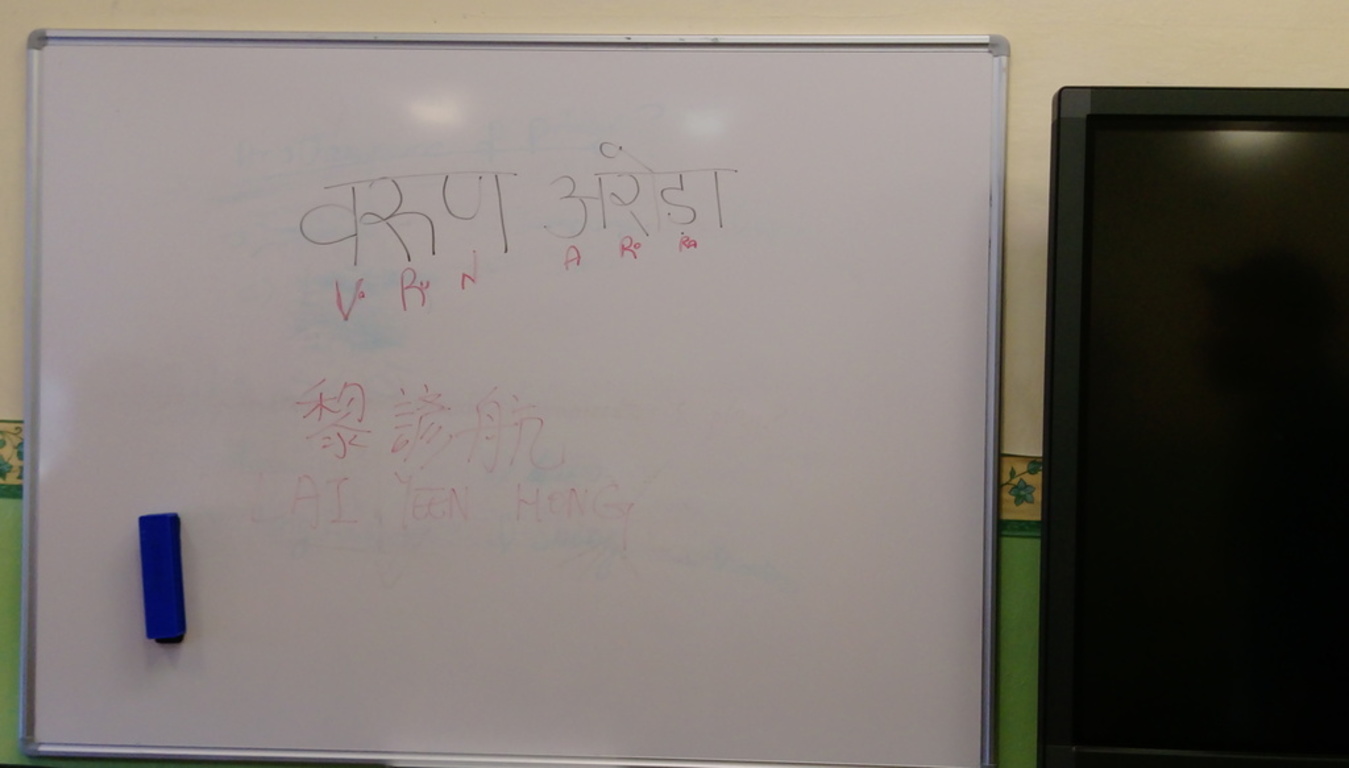 वरुण अरोड़ा
Va Ru N A Ro Ra
黎諺航
LAI YEEN HONG